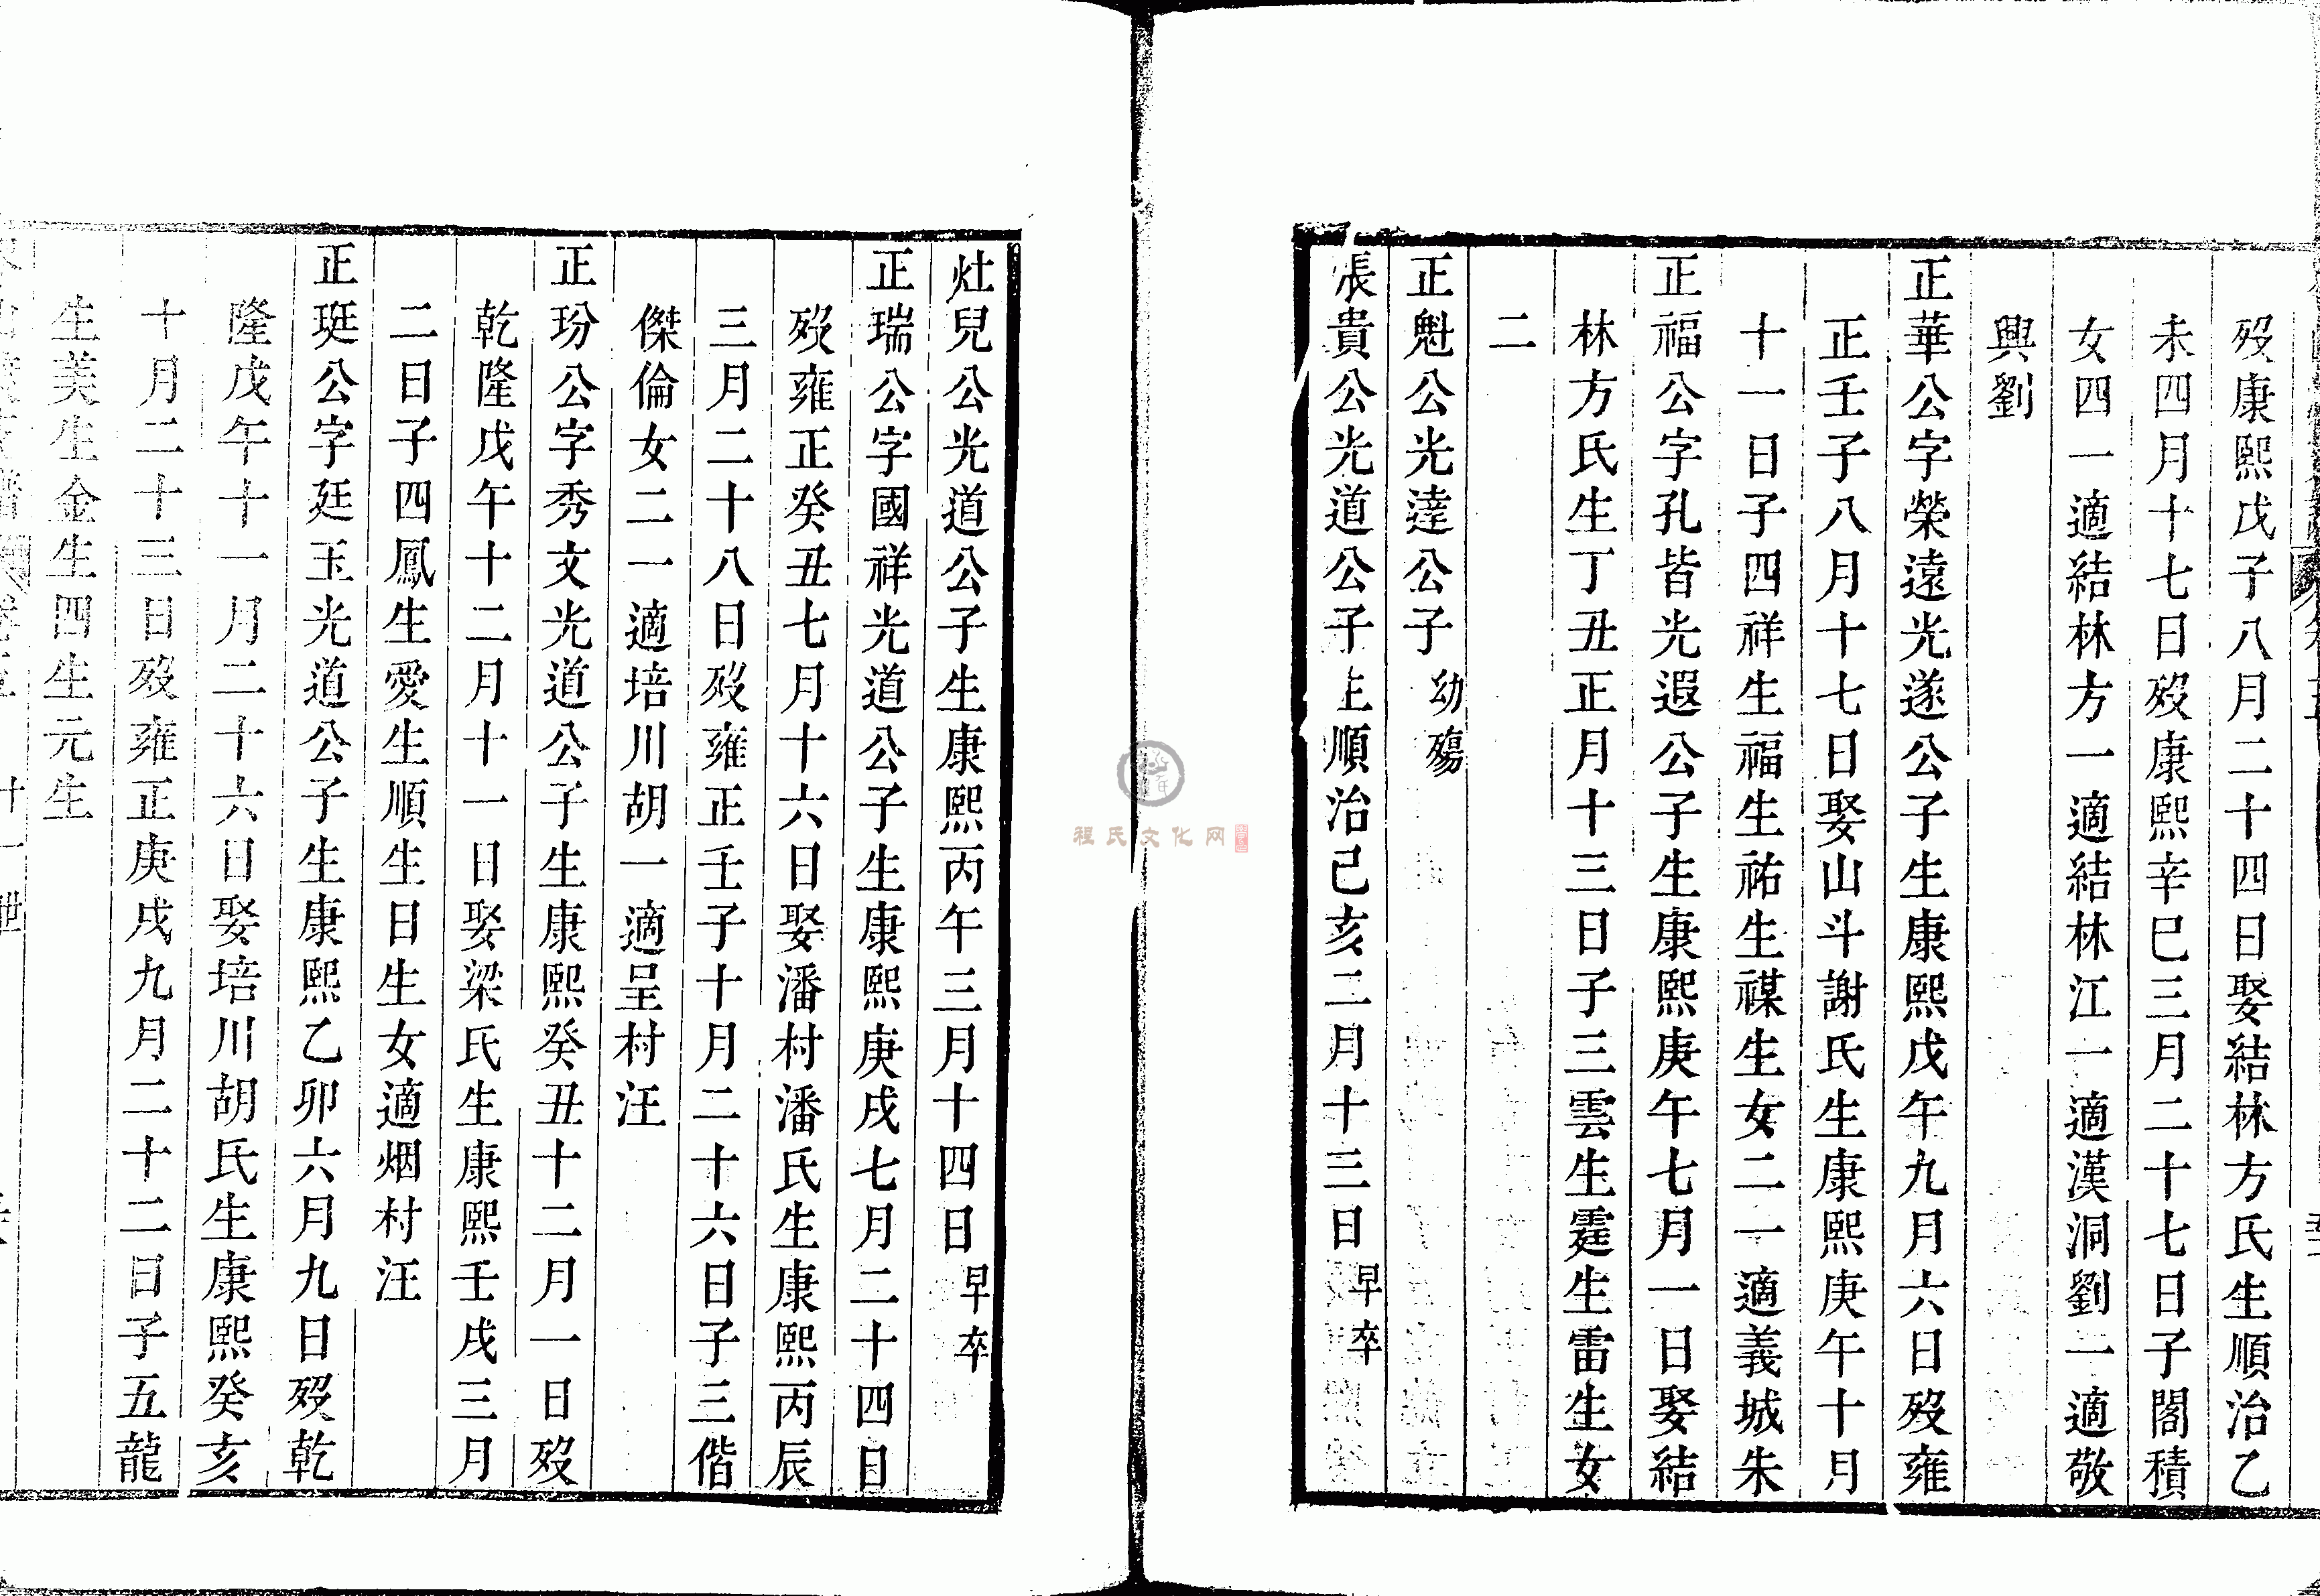 歿康熙戊子八月二十四日娶結林方氏生順治乙
未四月十七日歿康熙辛巳三月二十七日子閣積
女四一適結林方一適結林江一適漢洞劉一適敬
興劉
正華公字榮遠光遂公子生康熙戊午九月六日歿雍
正壬子八月十七日娶山斗謝氏生康熙庚午十月
十一日子四祥生福生祐生禖生女二一適義城朱
正福公字孔皆光遐公子生康熙庚午七月一日娶結
林方氏生丁丑正月十三日子三雲生霆生雷生女
二
正魁公光達公子幼殤
長貴公光道公子生順治己亥二月十三日早卒
灶兒公光道公子生康熙丙午三月十四日早卒
正瑞公字國祥光道公子生康熙庚戌七月二十四日
歿雍正癸丑七月十六日娶潘村潘氏生康熙丙辰
三月二十八日歿雍正壬子十月二十六日子三偕
傑倫女二一適培川胡一適呈村汪
正玢公字秀文光道公子生康熙癸丑十二月一日歿
乾隆戊午十二月十一日娶梁氏生康熙壬戌三月
二日子四鳳生愛生順生日生女適烟村汪
正珽公字廷玉光道公子生康熙乙卯六月九日歿乾
隆戊午十一月二十六日娶培川胡氏生康熙癸亥
十月二十三日歿雍正庚戌九月二十二日子五龍
生美生金生四生元生
程氏文化网